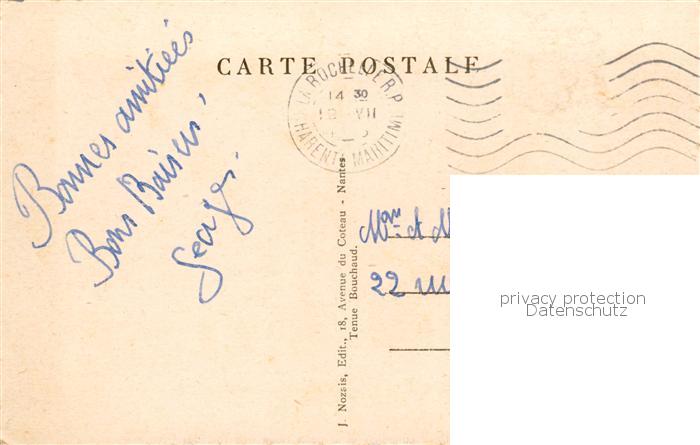 CARTE POSTALE
LA ROCHELLE R.P.
14 30
VII
CHARENTE MARITIME
Bonnes amitiés
Bons Baisers,
Georges.
J. Nozais, Edit., 18, Avenue du Coteau - Nantes
Tenue Bouchaud.
et
22
privacy protection
Datenschutz